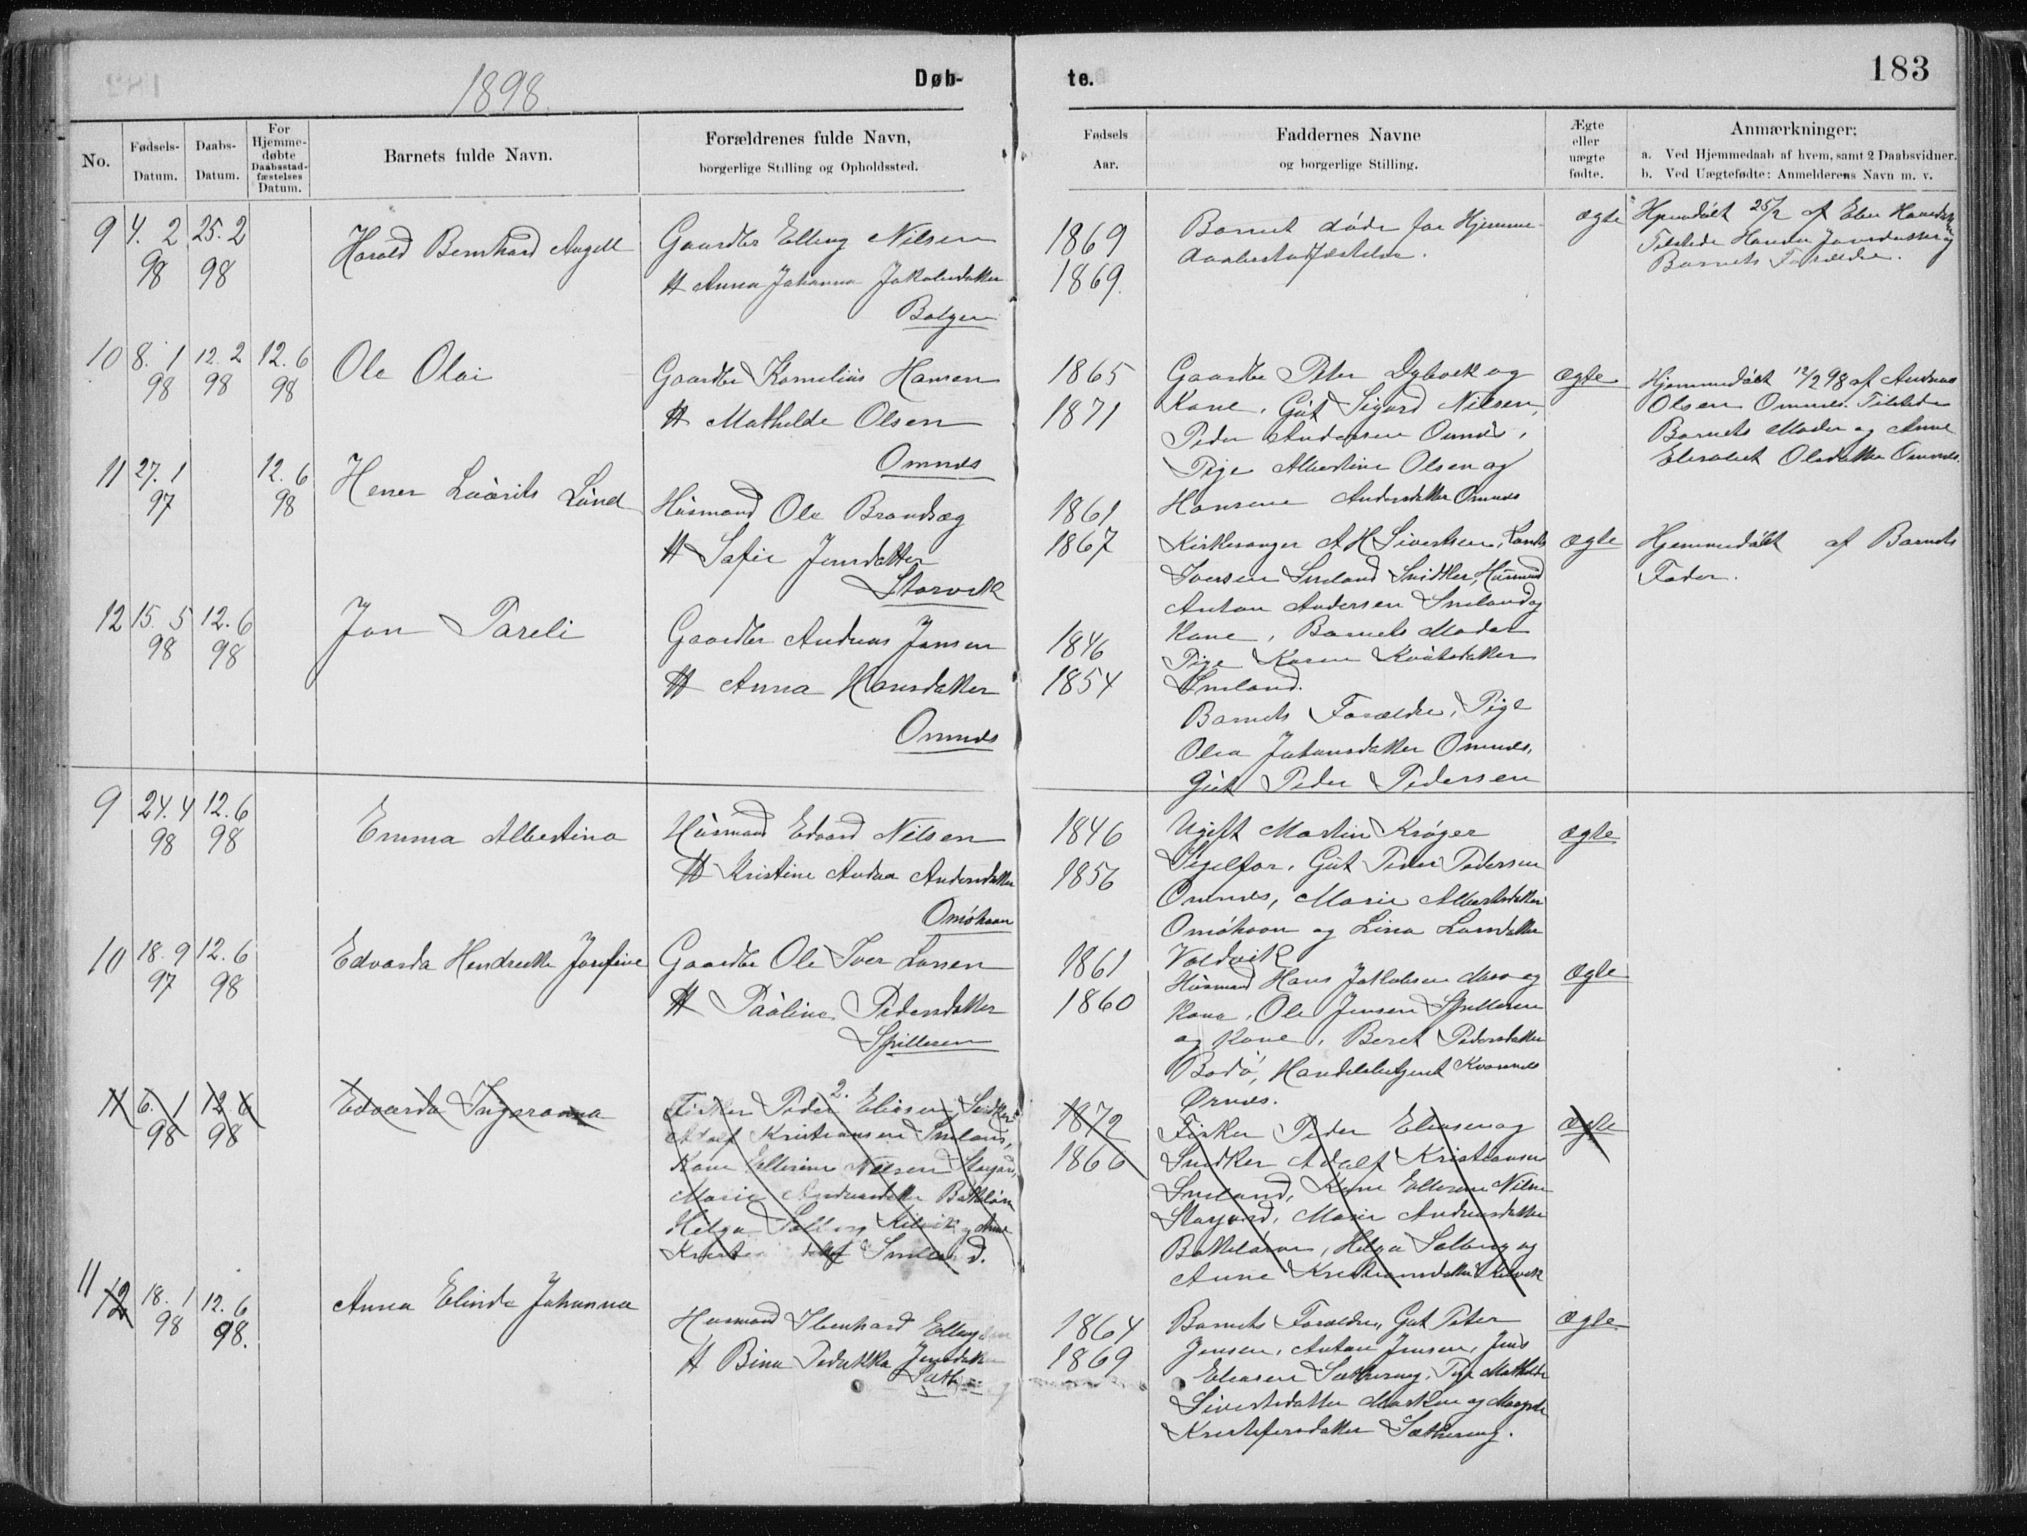 1898.
Døb-
te.
183
No.
Fødsels-
Datum.
Daabs-
Datum.
For
Hjemme-
døbte
Daabsstad-
fæstelses
Datum.
Barnets fulde Navn.
Forældrenes fulde Navn,
borgerlige Stilling og Opholdssted.
Fødsels
Aar.
Faddernes Navne
og borgerlige Stilling.
Ægte
eller
uægte
fødte.
Anmærkninger:
a. Ved Hjemmedaab af hvem, samt 2 Daabsvidner.
b. Ved Uægtefødte: Anmelderens Navn m. v.
9 4. 2 25. 2
98 98
Harald Bernhard Angell
Gaardbr Elling Nilsen
H Anna Johanna Jakobsdatter
Bolgen
1869
1869.
Barnet døde før Hjemme-
daabsstadfæstelse.
ægte
Hjemdøbt 25/2 af
Tilstede Hanna Jonsdatter og
Barnets Forældre.
10 8. 1 12. 2 12. 6
98 98 98
Ole Olai
Gaardbr Kornelius Hansen
H Mathilde Olsen
Omnes
1865
1871
Gaardbr Peter Dybvik og
Kone, Gut Sigurd Nilsen,
Peder Andersen Omnes,
Pige Albertine Olsen og
Hansine Andersdatter Omnes
ægte
Hjemmedøbt 12/2 98 af Andreas
Olsen Omnes. Tilstede
Barnets Moder og Anne
Elisabet Olsdatter Omnes.
11 27. 1 12. 6
97 98
Hener Laurits Lund
Husmand Ole Brandsæg
H Sofie Jensdatter
Storvik
1861
1867
Kirkesanger A H Sivertsen,
Iversen Smeland Snidker, Husmand
Anton Andersen Smeland og
Kone, Barnets Moder
Pige Karen Knutsdatter
Smeland.
ægte
Hjemmedøbt af Barnets
Fader.
12 15. 5 12. 6
98 98
Jon Pareli
Gaardbr Andreas Jonsen
H Anna Hansdatter
Omnes
1846
1854
Barnets Forældre, Pige
Olea Johansdatter Omnes,
Gut Peder Pedersen
9 24. 4 12. 6
98 98
Emma Albertina
Husmand Edvard Nilsen
H Kristine Andrea Andersdatter
Omøhavn
1846
1856
Ugift Martin Krøger
Sigelfor, Gut Peder Pedersen
Omnes, Marie Albertsdatter
Omøhavn og Lina Larsdatter
Valdvik
ægte
10 18. 9 12. 6
97 98
Edvarda Hendrikke Josefine
Gaardbr Ole Iver Larsen
H Pauline Pedersdatter
Spilderen
1861
1860
Husmand Hans Jakobsen og
Kone, Ole Jensen Spilderen
og Kone, Beret Pedersdatter
Bodø, Handelsbetjent Kvarnes
Ørnes.
Ægte
11 6. 1 12. 6
98 98
Edvarda Ingaranna
2.
Fisker Peder Eliasen, Snidker
Adolf Kristiansen Smeland,
Kone Ellerine Nilsen Støvgard,
Marie Andreasdatter Bakkelöven
Helga Solberg Kilvik og Anne
Smeland.
1872
1866
Fisker Peder Eliasen og
Snidker Adolf Kristiansen
Smeland, Kone Ellerine Nilsen
Marie Andreasdatter
Helga Solberg og
Anne Kristiansdatter Kilvik
ægte
11
12 18. 1 12. 6
98 98.
Anna Elinda Johanna
Husmand Ibenhard
H Bina Jensdatter
1864
1869
Barnets Forældre, Gut Peter
Jensen, Anton Jensen, Jens
Eliasen Sætereng, Pige Mathilde
Sivertsdatter og
Kristofersdatter Sætereng.
Ægte